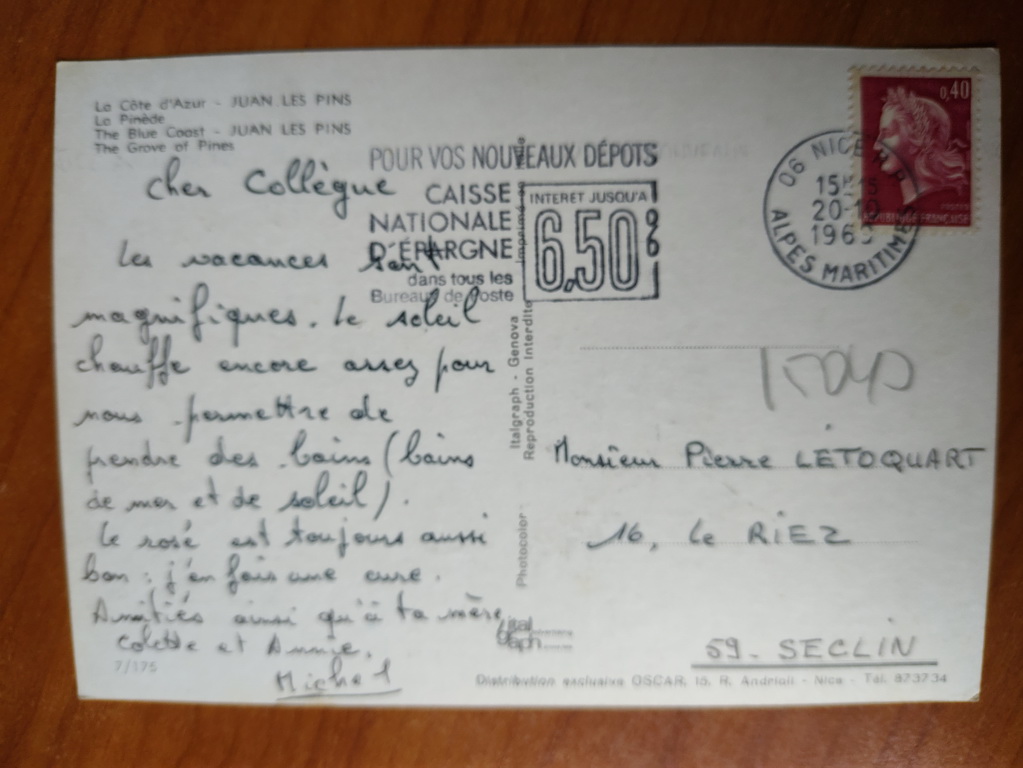 La Côte d'Azur - JUAN LES PINS
La Pinède
The Blue Coast - JUAN LES PINS
The Grove of Pines
Cher Collègue
Les vacances sont
magnifiques. Le soleil
chauffe encore assez pour
nous permettre de
prendre des bains (bains
de mer et de soleil).
Le rosé est toujours aussi
bon : j'en fais une cure.
Amitiés ainsi qu'à ta mère,
Colette et Annie.
Michel
7/175
POUR VOS NOUVEAUX DÉPOTS
CAISSE
NATIONALE
D'ÉPARGNE
dans tous les
Bureaux de Poste
INTERET JUSQU'A
6,50%
Italgraph - Genova
Reproduction Interdite
Photocolor
ital
graph
06 NICE R.P.
20-10
ALPES MARITIMES
0,40
REPUBLIQUE FRANÇAISE
Monsieur Pierre LETOQUART
16, Le RIEZ
59 - SECLIN
Distribution exclusive OSCAR, 15, R. Andrioli - Nice - Tél. 873734